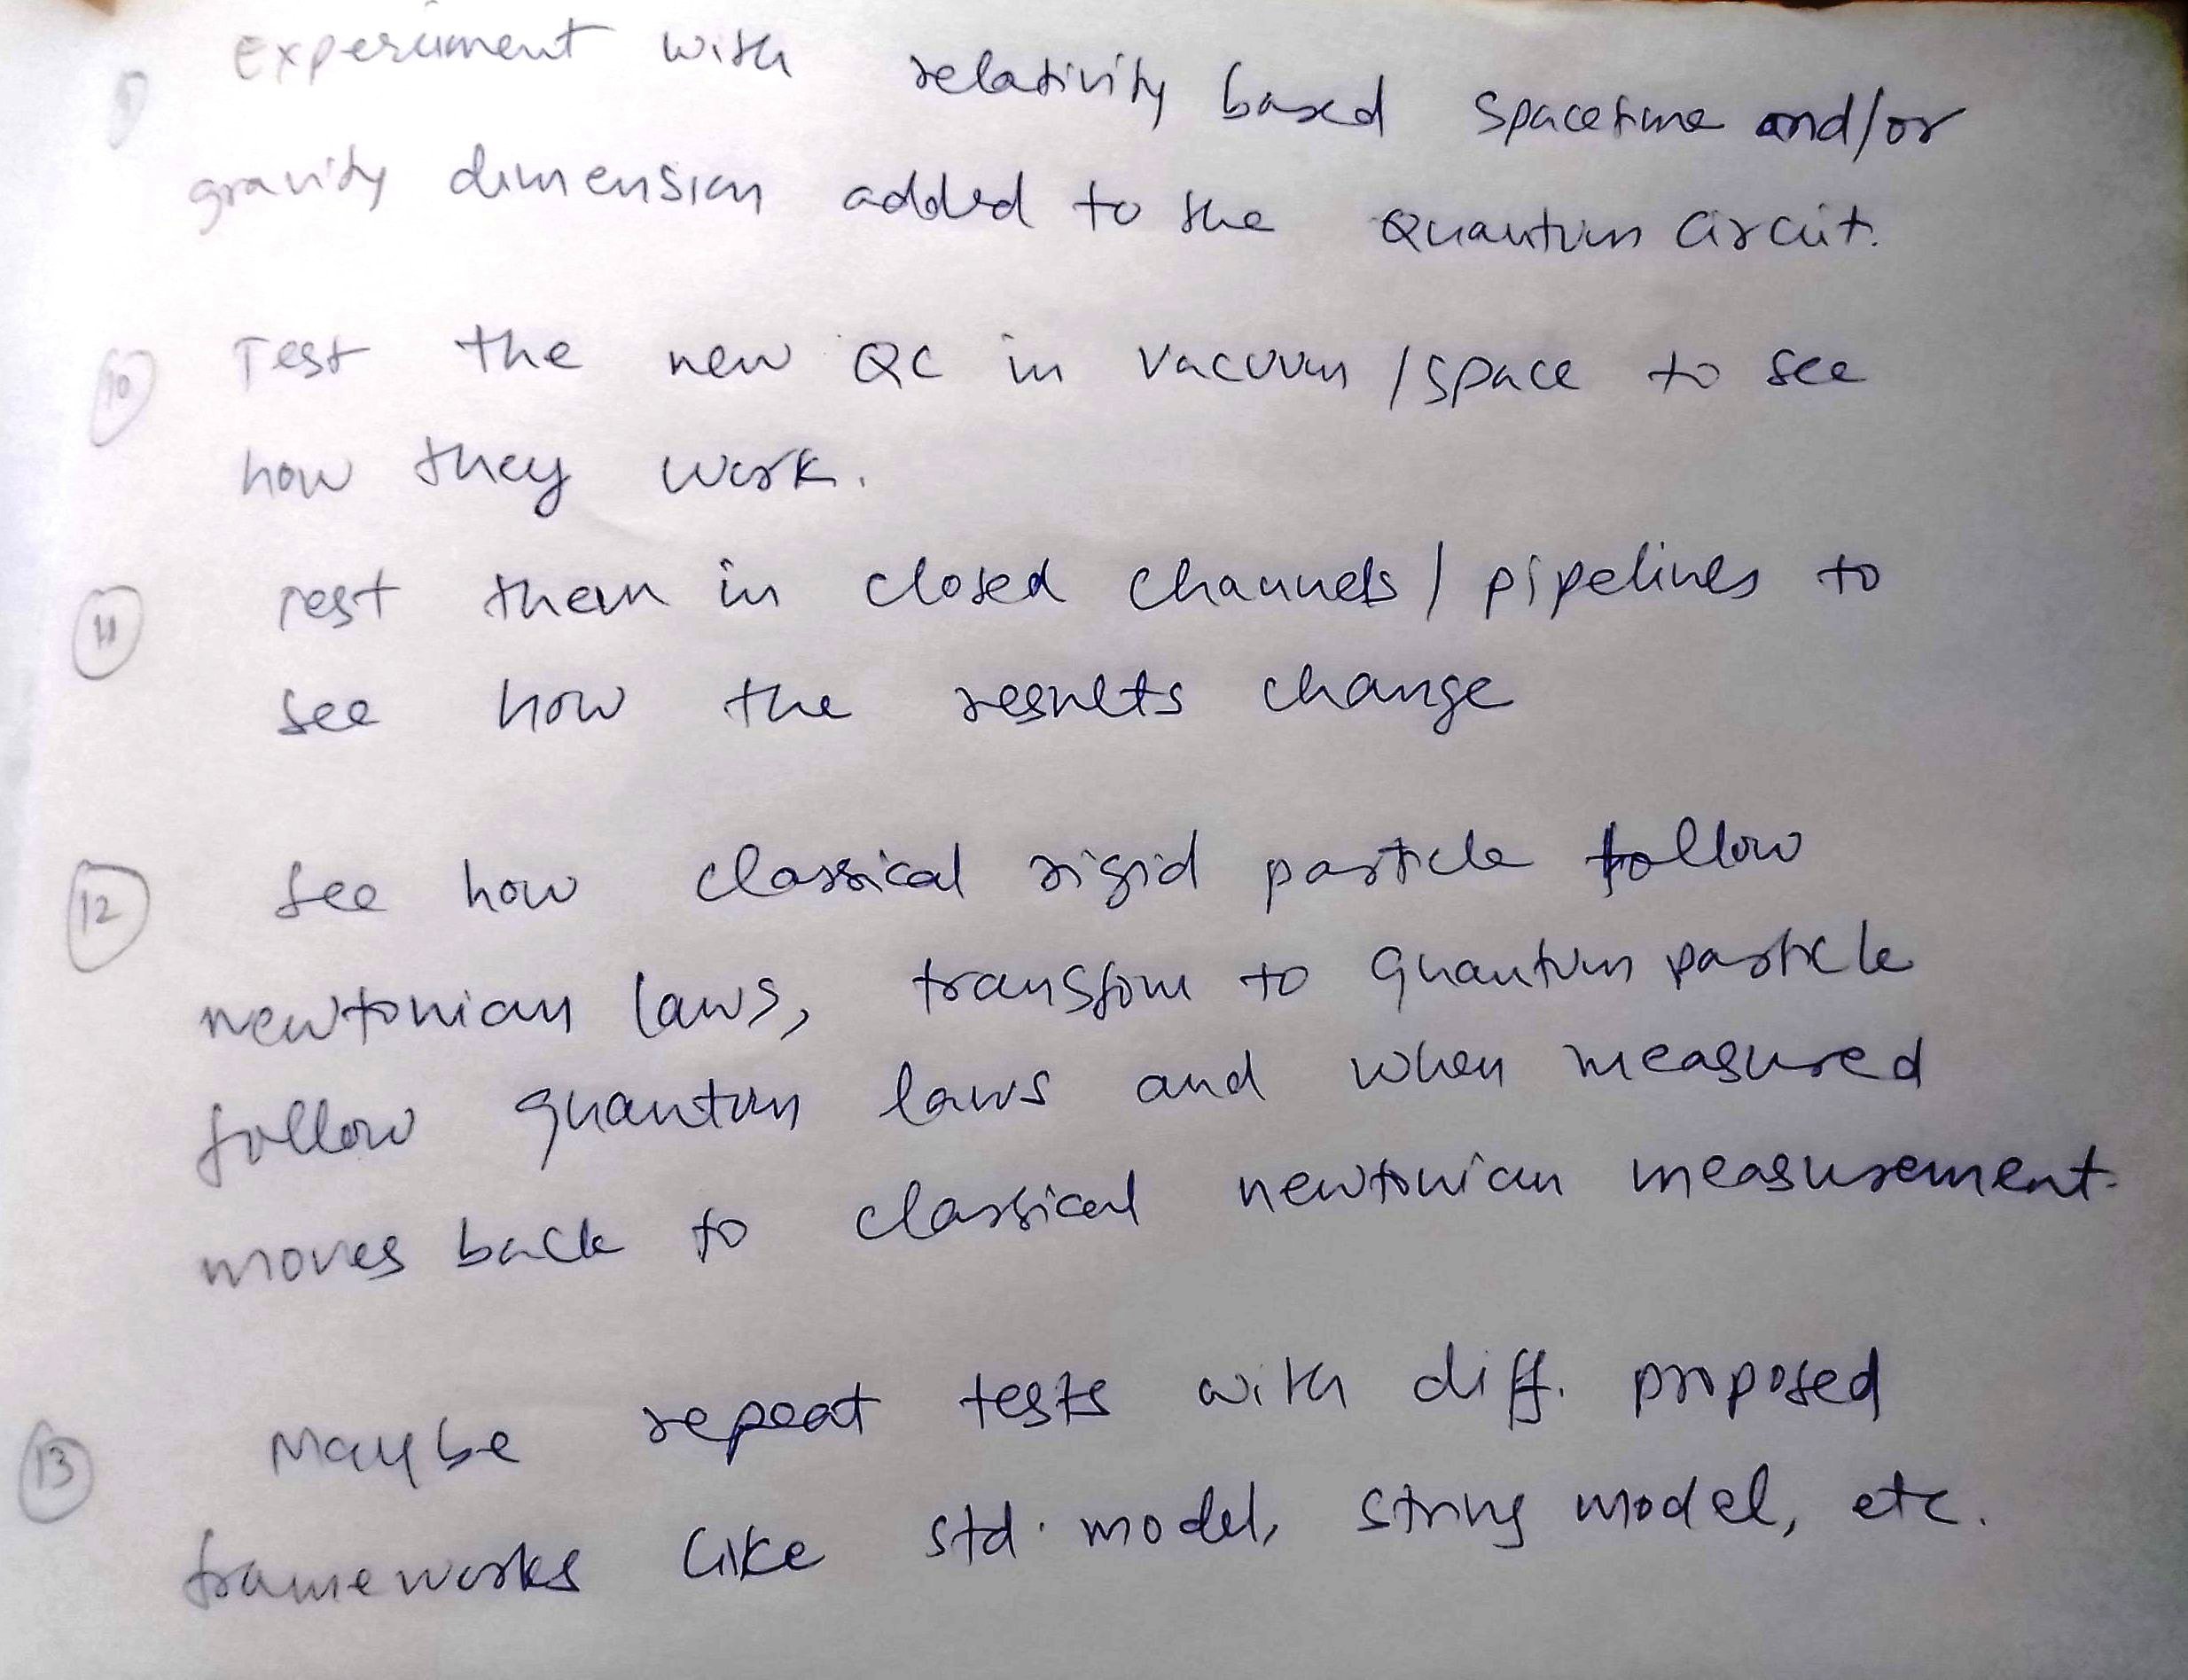 9 experiment with relativity based spacetime and/or
gravity dimension added to the Quantum Circuit.
10 Test the new QC in vacuum/space to see
how they work.
11 Test them in closed channels/pipelines to
see how the results change
12 See how classical rigid particle follow
newtonian laws, transform to quantum particle
follow quantum laws and when measured
moves back to classical newtonian measurement.
13 Maybe repeat tests with diff. proposed
frameworks like std. model, string model, etc.